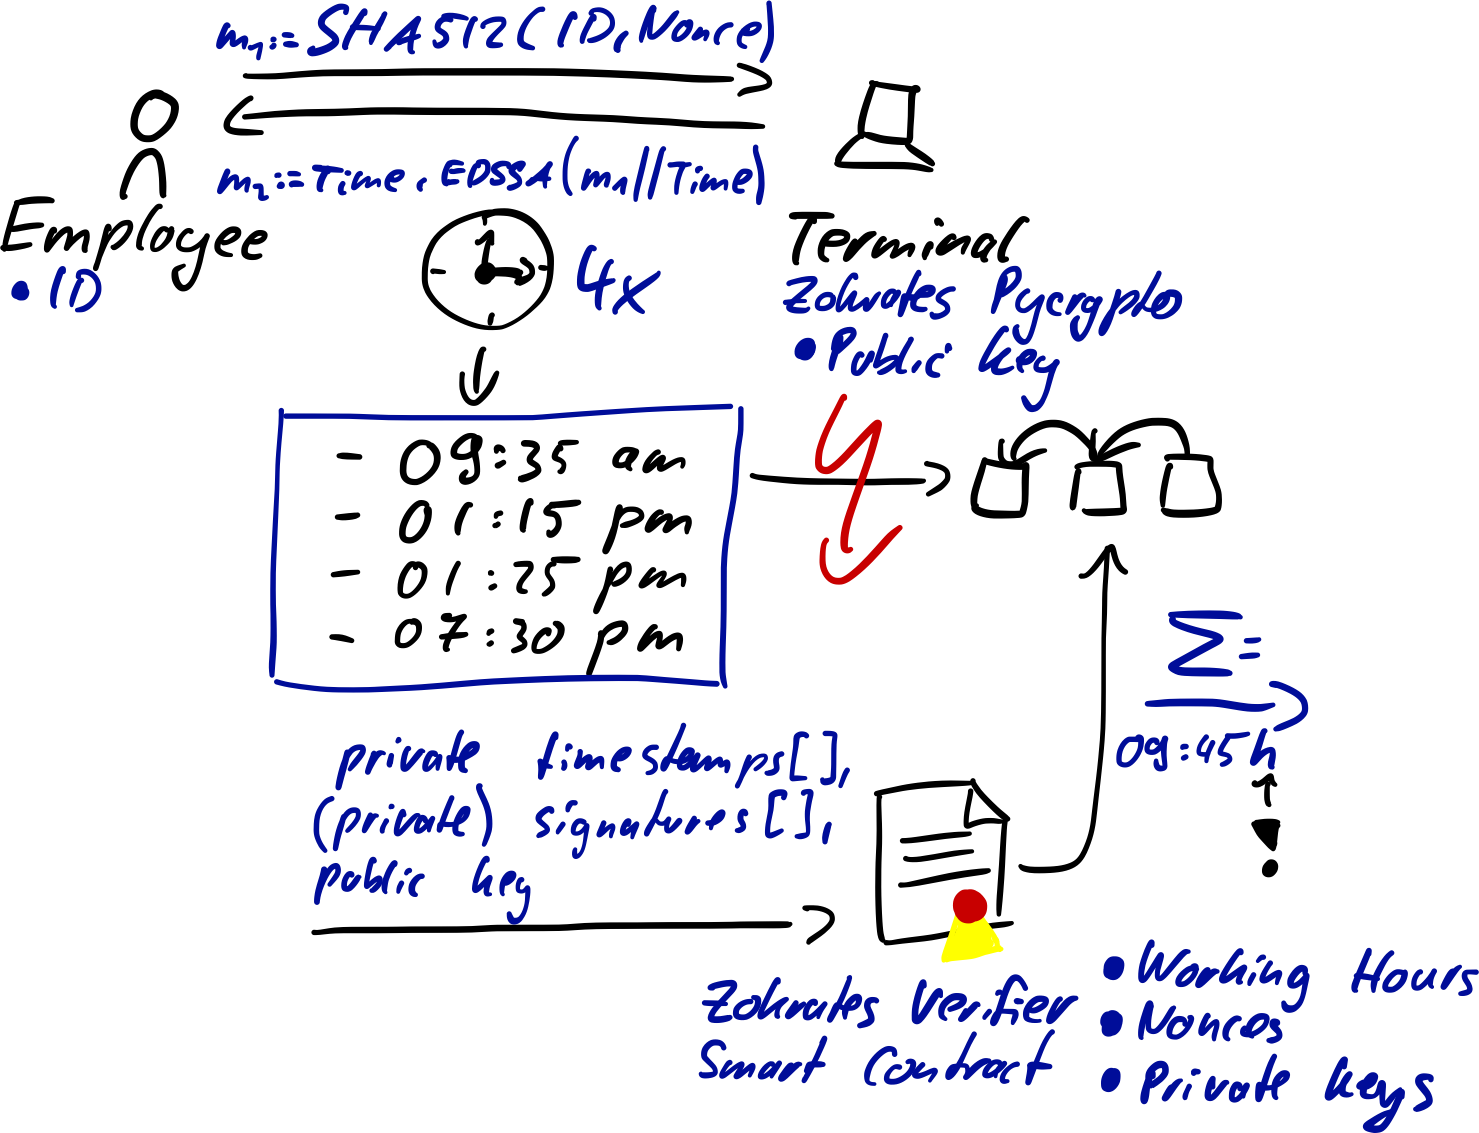 m₁:=SHA512(ID,Nonce)
m₂:=Time, EDSSA(m₁||Time)
Employee
• ID
4x
Terminal
Zokrates Pycrypto
• Public key
- 09:35 am
- 01:15 pm
- 01:25 pm
- 07:30 pm
Σ=
09:45h
private timestamps[],
(private) signatures[],
public key
Zokrates Verifier
Smart Contract
• Working Hours
• Nonces
• Private keys